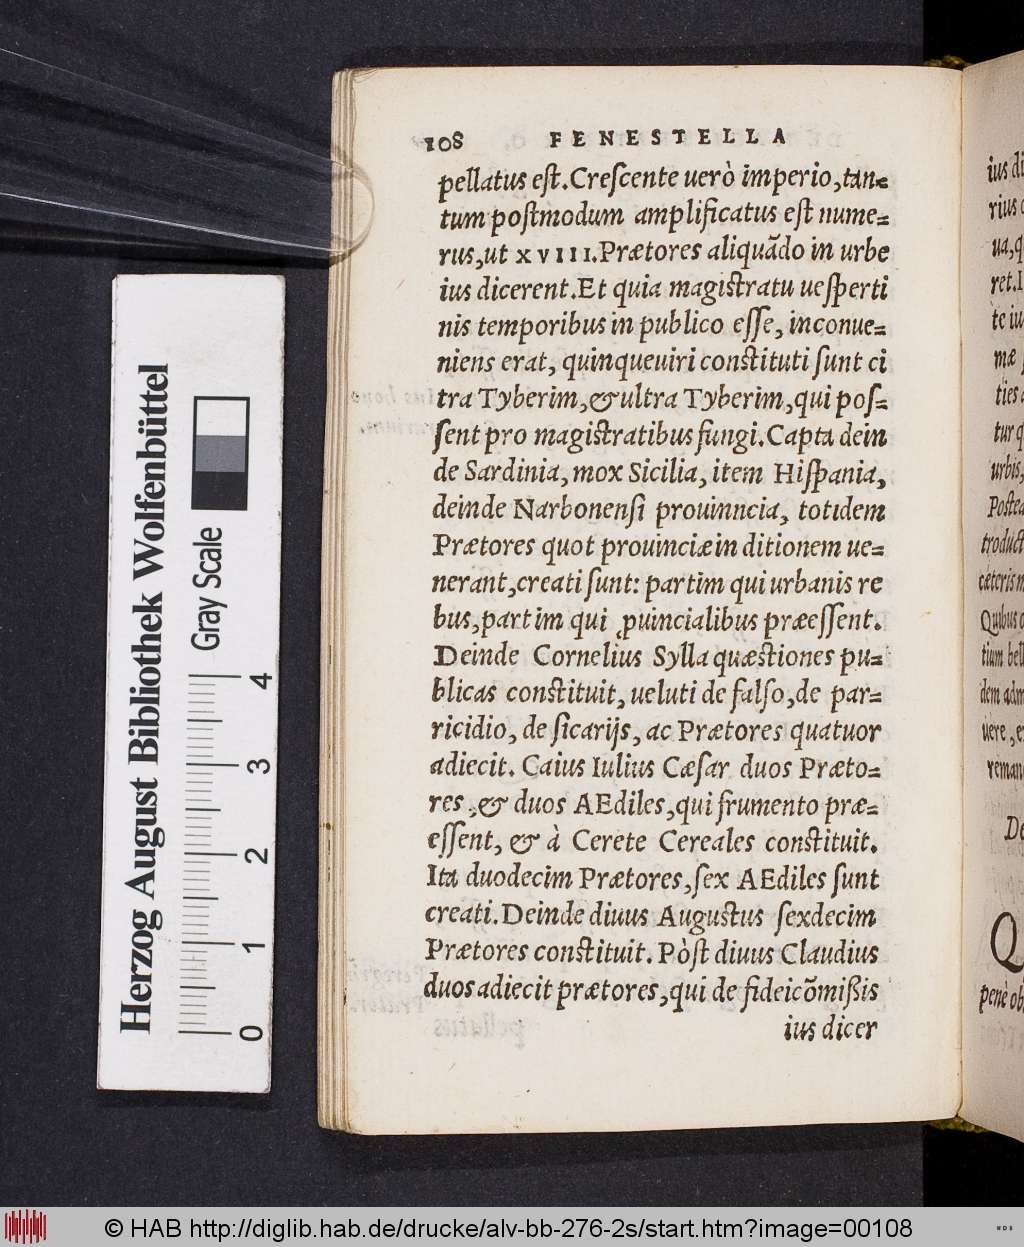 108 FENESTELLA
pellatus est. Crescente uerò imperio, tan-
tum postmodum amplificatus est nume-
rus, ut XVIII. Prætores aliquãdo in urbe
ius dicerent. Et quia magistratu uesperti
nis temporibus in publico esse, inconue-
niens erat, quinqueuiri constituti sunt ci
tra Tyberim, & ultra Tyberim, qui pos-
sent pro magistratibus fungi. Capta dein
de Sardinia, mox Sicilia, item Hispania,
deinde Narbonensi prouinncia, totidem
Prætores quot prouinciæ in ditionem ue-
nerant, creati sunt: partim qui urbanis re
bus, partim qui ꝓuincialibus præessent.
Deinde Cornelius Sylla quæstiones pu-
blicas constituit, ueluti de falso, de par-
ricidio, de sicarijs, ac Prætores quatuor
adiecit. Caius Iulius Cæsar duos Præto-
res, & duos AEdiles, qui frumento præ-
essent, & à Cerete Cereales constituit.
Ita duodecim Prætores, sex AEdiles sunt
creati. Deinde diuus Augustus sexdecim
Prætores constituit. Pòst diuus Claudius
duos adiecit prætores, qui de fideicõmißis
ius dicer
ius di
rius
ua, q
ret. I
te iu
mæ
ties
tur q
urbis,
Postea
troduct
cæteris m
Quibus
tium bell
dem adm
uere, e
reman
De
Q
penè ob
Herzog August Bibliothek Wolfenbüttel
Gray Scale
0 1 2 3 4
© HAB http://diglib.hab.de/drucke/alv-bb-276-2s/start.htm?image=00108
WDB